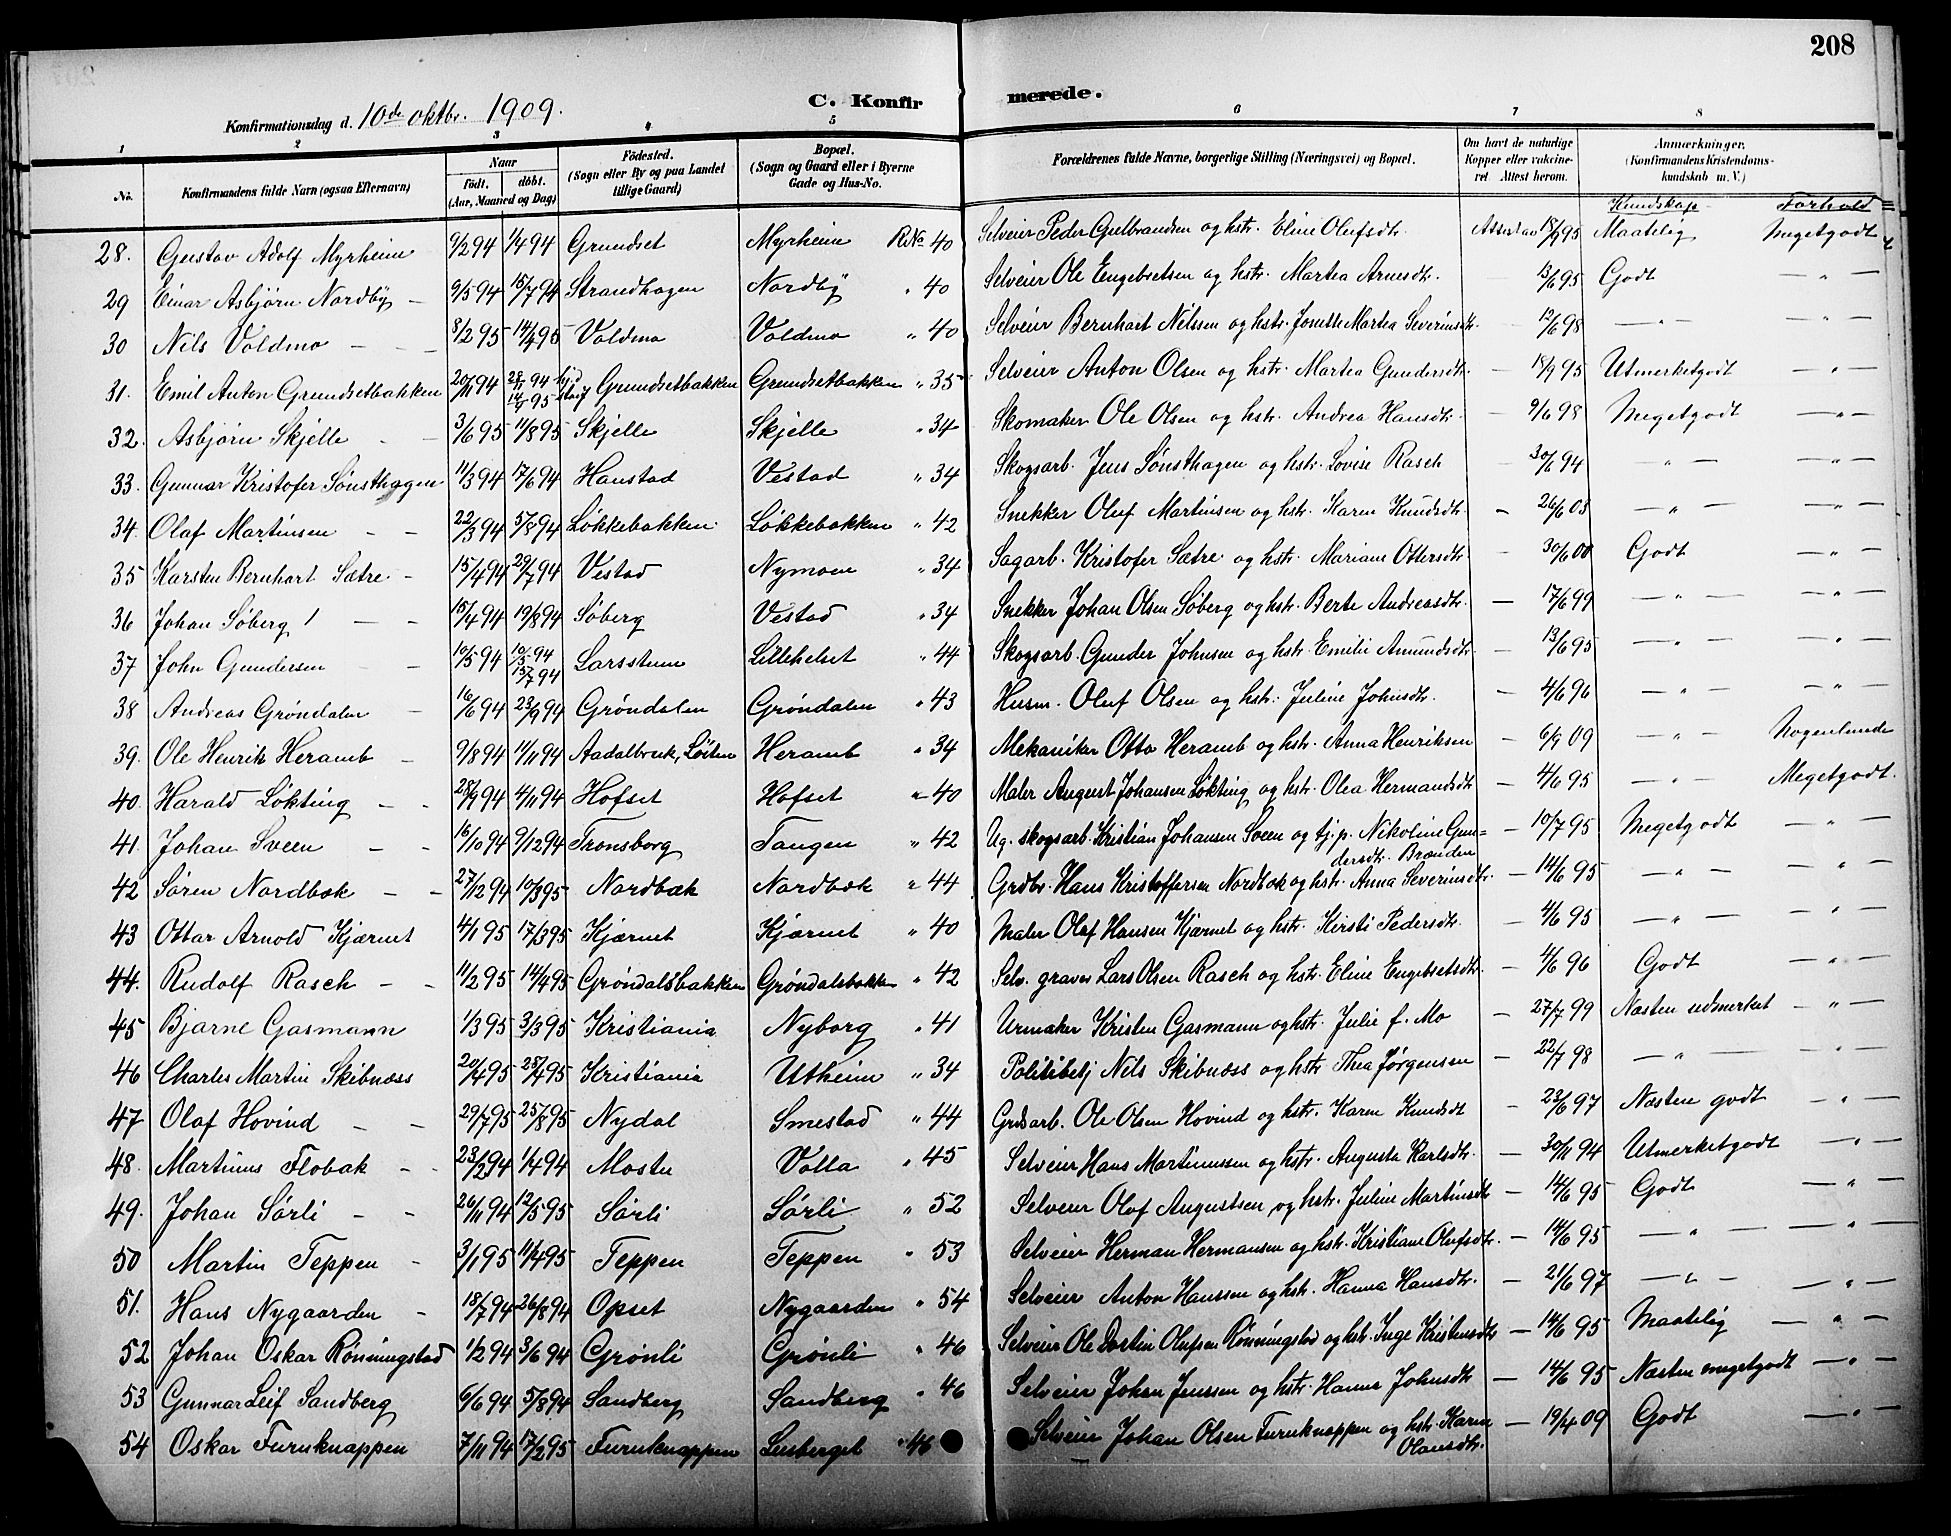 208
C. Konfirmerede.
Konfirmationsdag d. 10de oktbr. 1909.
1 2 3 4 5 6 7 8
No. Konfirmandens fulde Navn (ogsaa Efternavn) Naar födt. döbt. (Aar, Maaned og Dag) Födested. (Sogn eller By og paa Landet tillige Gaard) Bopæl. (Sogn og Gaard eller i Byerne Gade og Hus-No. Forældrenes fulde Navne, borgerlige Stilling (Næringsvei) og Bopæl. Om havt de naturlige Kopper eller vaccineret. Attest herom. Anmærkninger. (Konfirmandens Kristendomskundskab m. V.)
Kundskap Forhold
28. Gustav Adolf Myrheim 9/2 94 1/4 94 Grundset Myrheim R.No. 40 Selveier Peder Gulbrandsen og hstr. Eline Olufsdtr. 18/9 95 Maatelig Megetgodt
29 Einar Asbjørn Nordby — 9/5 94 15/7 94 Strandhagen Nordby " 40 Selveier Ole Engebretsen og hstr. Martea Arnesdtr. — 13/6 95 Godt — " —
30 Nils Voldmo — — 8/2 95 14/4 95 Voldmo Voldmo " 40 Selveier Bernhart Nilssen og hstr. Martea Severinsdtr. — 12/6 98 — " — — " —
31. Emil Anton Grundsetbakken 20/11 94 Grundsetbakken Grundsetbakken " 35 Selveier Anton Olsen og hstr. Martea Gundersdtr. — 18/9 95 Utmerketgodt — " —
32. Asbjørn Skjelle — — 3/6 95 11/8 95 Skjelle Skjelle " 34 Skomaker Ole Olsen og hstr. Andrea Hansdtr. — 9/6 98 Megetgodt — " —
33. Gunnar Kristofer Sönsthagen 11/3 94 17/6 94 Hanstad Vestad " 34 Skogsarb. Jens Sönsthagen og hstr. Lovise Rasch — 30/6 94 — " — — " —
34. Olaf Martinsen — — 22/3 94 5/8 94 Løkkebakken Løkkebakken " 42 Snekker Oluf Martinsen og hstr. Karen Knudsdtr. — 26/6 08 — " — — " —
35 Karsten Bernhart Sætre — 15/4 94 29/7 94 Vestad Nymoen " 34 Sagarb. Kristofer Sætre og hstr. Mariane Ottersdtr. — 30/6 00 Godt — " —
36 Johan Søberg — — 15/4 94 19/8 94 Søberg Vestad " 34 Snekker Johan Olsen Søberg og hstr. Berte Andreasdtr. — 17/6 99 — " — — " —
37 John Gundersen — 10/5 94 10/5 94 15/7 94 Larsstuen Lillehelset " 44 Skogsarb. Gunder Johnsen og hstr. Emilie Amundsdtr. — 13/6 95 — " — — " —
38 Andreas Grøndalen — 16/6 94 23/9 94 Grøndalen Grøndalen " 43 Husm. Oluf Olsen og hstr. Juline Johnsdtr. — 4/6 96 — " — — " —
39. Ole Henrik Heramb — 9/8 94 11/11 94 Aadalbruk, Löiten Heramb " 34 Mekaniker Otto Heramb og hstr. Anna Henriksen — 6/9 09 — " — Nogenlunde
40. Harald Løkting — — 28/9 94 4/11 94 Hofset Hofset " 40 Maler August Johansen Løkting og hstr. Olea Hermansdtr — 4/6 95 — " — Megetgodt.
41. Johan Sveen — — 16/10 94 9/12 94 Tronsborg Tangen " 42 Ug. skogsarb. Kristian Johansen Sveen og tj.p. Nikoline Gun=
dersdtr. Brænden — 10/7 95 Megetgodt — " —
42 Søren Nordbæk — — 27/12 94 10/3 95 Nordbæk Nordbæk " 44 Grdbr. Hans Kristoffersen Nordbæk og hstr. Anna Severinsdtr. — 14/6 95 — " — — " —
43 Ottar Arnold Kjærnet 14/1 95 17/3 95 Kjærnet Kjærnet " 40 Maler Olaf Hansen Kjærnet og hstr. Kirsti Pedersdtr. — 4/6 95 — " — — " —
44. Rudolf Rasch — — 11/2 95 14/4 95 Grøndalsbakken Grøndalsbakken " 42 Selv. graver Lars Olsen Rasch og hstr. Eline Engebretsdtr. — 4/6 96 Godt — " —
45 Bjarne Gasmann 1/3 95 3/3 95 Kristiania Nyborg " 41 Urmaker Kristen Gasmann og hstr. Julie f. Mo — 27/7 99 Næsten udmerket — " —
46 Charles Martin Skibnæss 20/4 95 28/4 95 Kristiania Utheim " 34 Politibetj Nils Skibnæss og hstr Thea Jørgensen — 22/7 98 — " — — " —
47 Olaf Hovind — — 29/7 95 25/8 95 Nydal Smestad " 44 Grdsarb. Ole Olsen Hovind og hstr. Karen Knudsdt — 23/6 97 Næsten godt — " —
48. Martinus Flobak — — 23/2 94 1/4 94 Mostu Volla " 45 Selveier Hans Martinussen og hstr. Augusta Karlsdtr. — 30/11 94 Utmerketgodt — " —
49. Johan Sørli — — 26/11 94 12/5 95 Sørli Sørli " 52 Selveier Olof Augustsen og hstr. Juline Martinsdtr — 14/6 95 Godt — " —
50 Martin Teppen — 3/1 95 11/4 95 Teppen Teppen " 53 Selveier Herman Hermansen og hstr. Kristiane Olufsdtr. — 14/6 95 — " — — " —
51. Hans Nygaarden — 18/7 94 26/8 94 Opset Nygaarden " 54 Selveier Anton Hanssen og hstr. Hanna Hansdtr. — 21/6 97 — " — — " —
52 Johan Oskar Rönningstad 1/2 94 3/6 94 Grønli Grønli " 46 Selveier Ole Dortin Olufsen Rönningstad og hstr. Inge Kristensdtr — 14/6 95 Maatelig — " —
53 Gunnar Leif Sandberg 6/6 94 5/8 94 Sandberg Sandberg " 46 Selveier Johan Jenssen og hstr. Hanna Johnsdtr — 14/6 95 Næsten megetgodt — " —
54 Oskar Furuknappen 7/11 94 17/2 95 Furuknappen Lusberget " 46 Selveier Johan Olsen Furuknappen og hstr. Karen
Olausdtr. — 19/4 09 Godt — " —